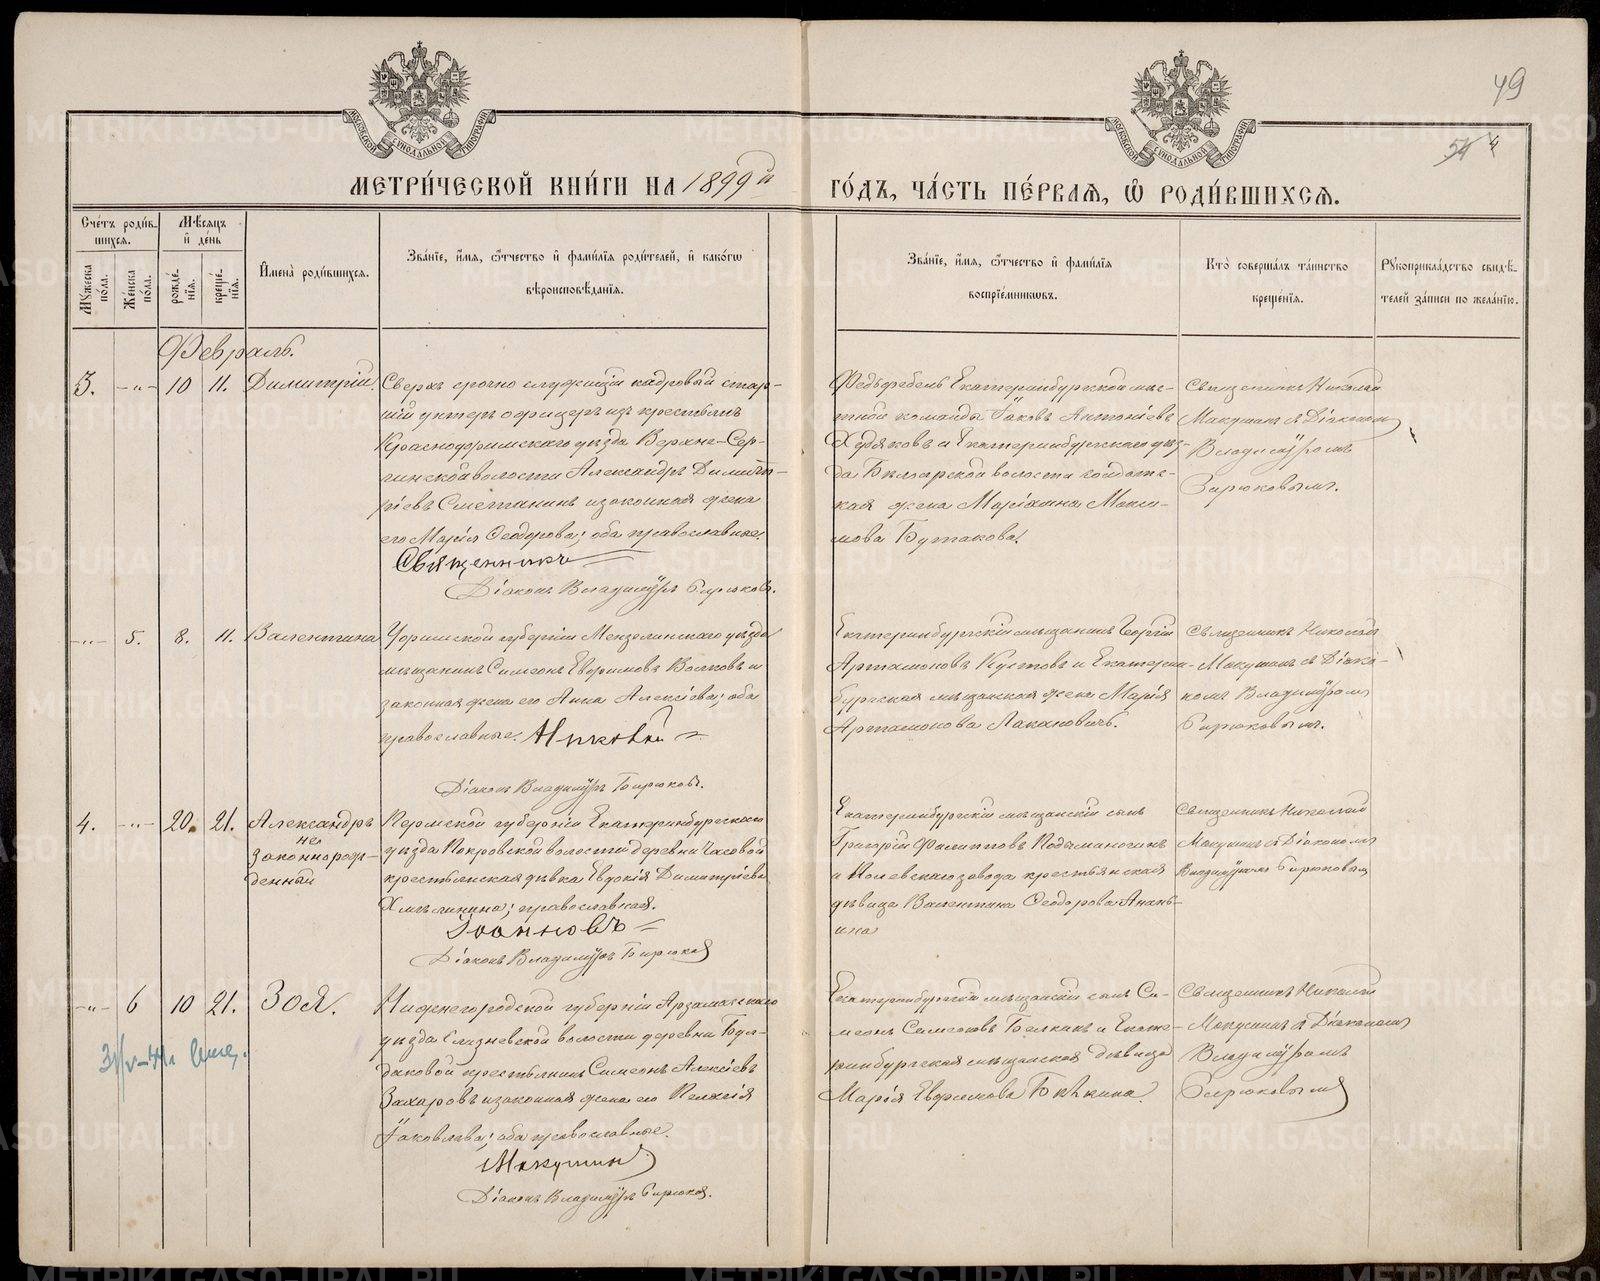 49
54
МОСКОВСКОЙ СѴНОДАЛЬНОЙ ТИПОГРАФІИ
МОСКОВСКОЙ СѴНОДАЛЬНОЙ ТИПОГРАФІИ
МЕТРИ́ЧЕСКОЙ КНИ́ГИ НА 1899й ГО́ДЪ, ЧА́СТЬ ПЕ́РВАѦ, Ѡ҆ РОДИ́ВШИХСѦ.
Сче́тъ роди́в-
шихсѧ.
Мꙋ́жеска по́ла.
Же́нска по́ла.
Мѣ́сѧцъ
и҆ де́нь
рожде́-
нїѧ.
креще́-
нїѧ.
И҆мена̀ роди́вшихсѧ.
Зва́нїе, и҆́мѧ, ѻ҆́тчество и҆ фами́лїѧ роди́телей, и҆ како́гѡ
вѣроисповѣ́данїѧ.
Зва́нїе, и҆́мѧ, ѻ҆́тчество и҆ фами́лїѧ
воспрїе́мникѡвъ.
Кто̀ соверша́лъ та́инство
креще́нїѧ.
Рꙋкоприкла́дство свидѣ́-
телей за́писи по жела́нїю.
Февраль.
3. -"- 10 11. Димитрій
Сверхъ срочно служащій кадровый стар-
шій унтеръ офицеръ изъ крестьянъ
Красноуфимскаго уѣзда Верхне-Сер-
гинской волости Александръ Димит-
ріевъ Сметанинъ и законная жена
его Марія Ѳеодорова; оба православные.
Священникъ
Діаконъ Владиміръ Бирюковъ.
Фельдфебель Екатеринбургской мѣс-
тной команды Іаковъ Антоніевъ
Худяковъ и Екатеринбургскаго уѣз-
да волости солдатс-
кая жена Маріамна Макси-
мова Бутакова.
Священникъ Николай
Макушинъ съ Діакономъ
Владиміромъ
Бирюковымъ.
-"- 5. 8. 11. Валентина
Уфимской губерніи Мензелинскаго уѣзда
мѣщанинъ Симеонъ Евфимовъ Волковъ и
законная жена его Анна Алексіева; оба
православные. Николай
Діаконъ Владиміръ Бирюковъ.
Екатеринбургскій мѣщанинъ Георгій
Артамоновъ Кустовъ и Екатерин-
бургская мѣщанская жена Марія
Артамонова Лакановичъ.
Священникъ Николай
Макушинъ съ Діако-
номъ Владиміромъ
Бирюковымъ.
4. -"- 20. 21. Александръ
не
законнорож-
денный
Пермской губерніи Екатеринбургскаго
уѣзда Покровской волости деревни Часовой
крестьянская дѣвка Евдокія Димитріева
Хмѣлинина; православная.
Іоанновъ
Діаконъ Владиміръ Бирюковъ
Екатеринбургскій мѣщанскій сынъ
Григорій Филипповъ
и Полевскаго завода крестьянская
дѣвица Валентина Ѳеодорова Ананьи-
ина
Священникъ Николай
Макушинъ съ Діакономъ
Владиміромъ Бирюковымъ
-"- 6 10 21. Зоя.
Нижнегородской губерніи Арзамасскаго
уѣзда Слизневской волости деревни Бул-
даковой крестьянинъ Симеонъ Алексіевъ
Захаровъ и законная жена его Пелагія
Іаковлева; оба православные.
Макушинъ
Діаконъ Владиміръ Бирюковъ.
Екатеринбургскій мѣщанскій сынъ Си-
меонъ Симеоновъ Бѣлкинъ и Екате-
ринбургская мѣщанская дѣвица
Марія Евфимова Бѣлкина.
Священникъ Николай
Макушинъ съ Діакономъ
Владиміромъ
Бирюковымъ
METRIKI.GASO-URAL.RU